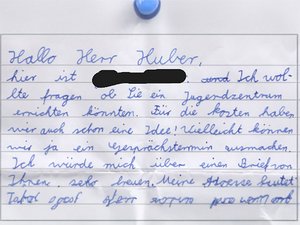 Hallo Herr Huber,
hier ist . und Ich wol-
lte fragen ob Sie ein Jugendzentrum
errichten könnten. Für die kosten haben
wir auch schon eine Idee! Vielleicht können
wir ja ein Gesprächstermin ausmachen.
Ich würde mich über einen Brief von
Ihnen sehr freuen. Meine